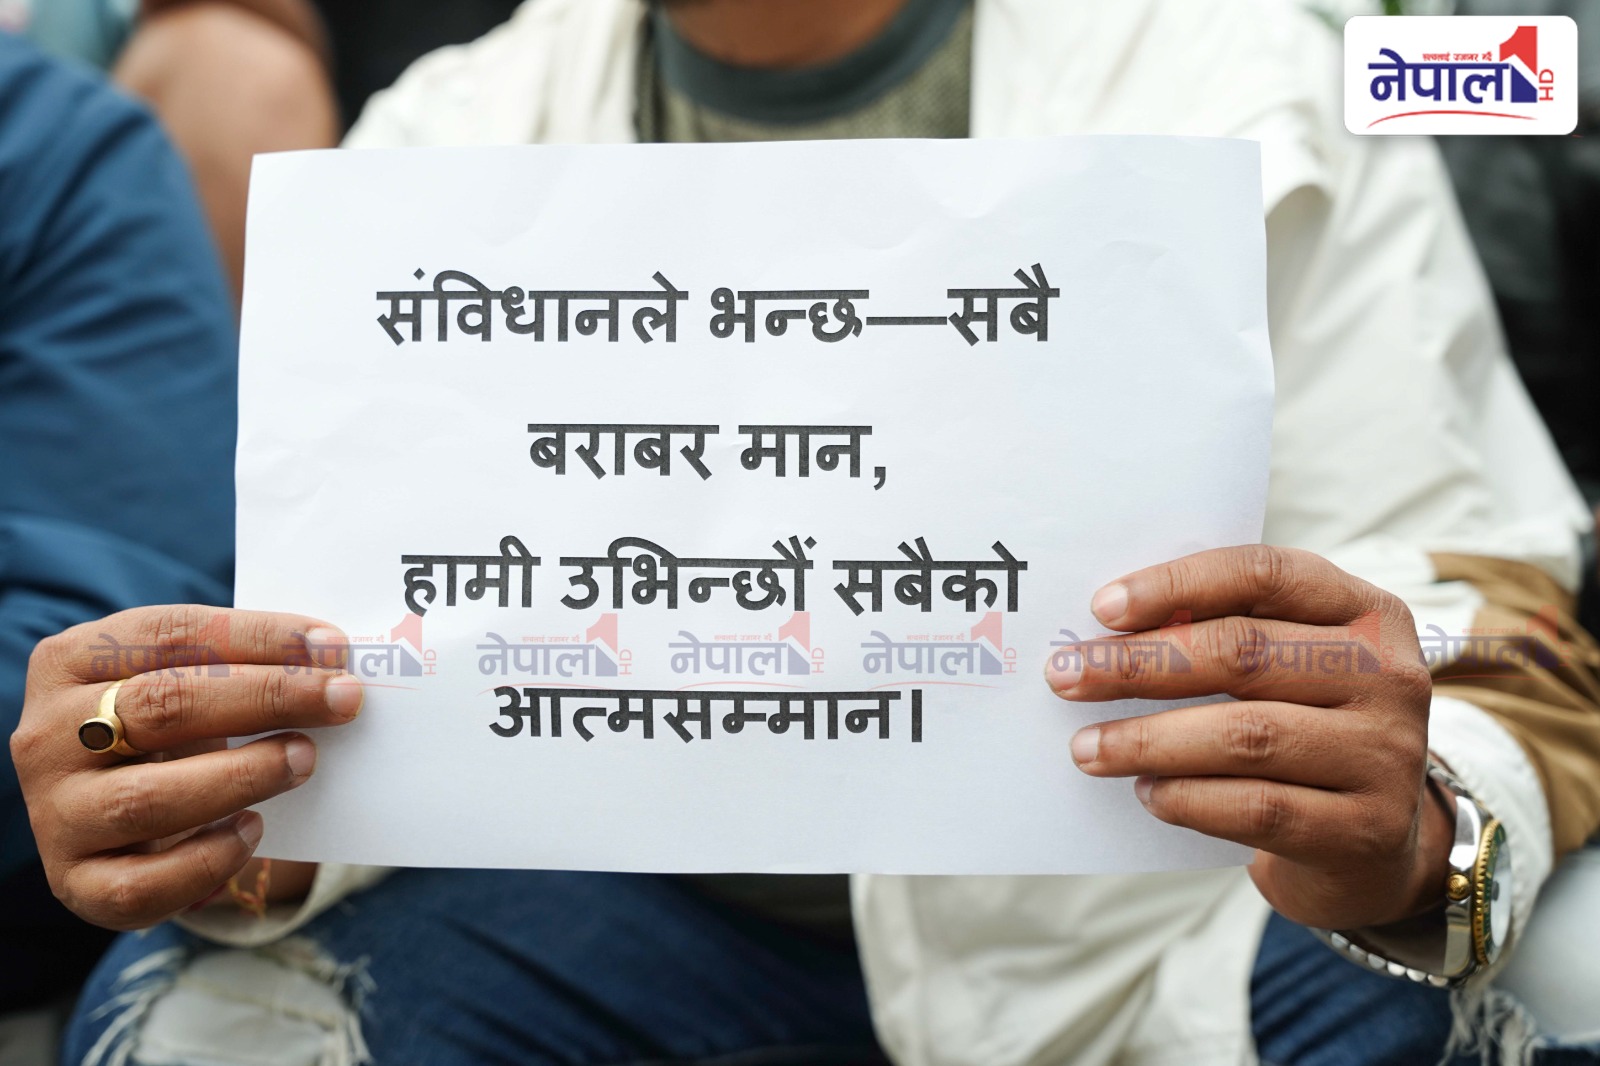 सत्यलाई उजागर गर्दै
नेपाल 1 HD
संविधानले भन्छ—सबै
बराबर मान,
हामी उभिन्छौं सबैको
नेपाल 1 HD नेपाल 1 HD नेपाल 1 HD नेपाल 1 HD नेपाल 1 HD नेपाल 1 HD नेपाल 1 HD नेपाल
आत्मसम्मान।